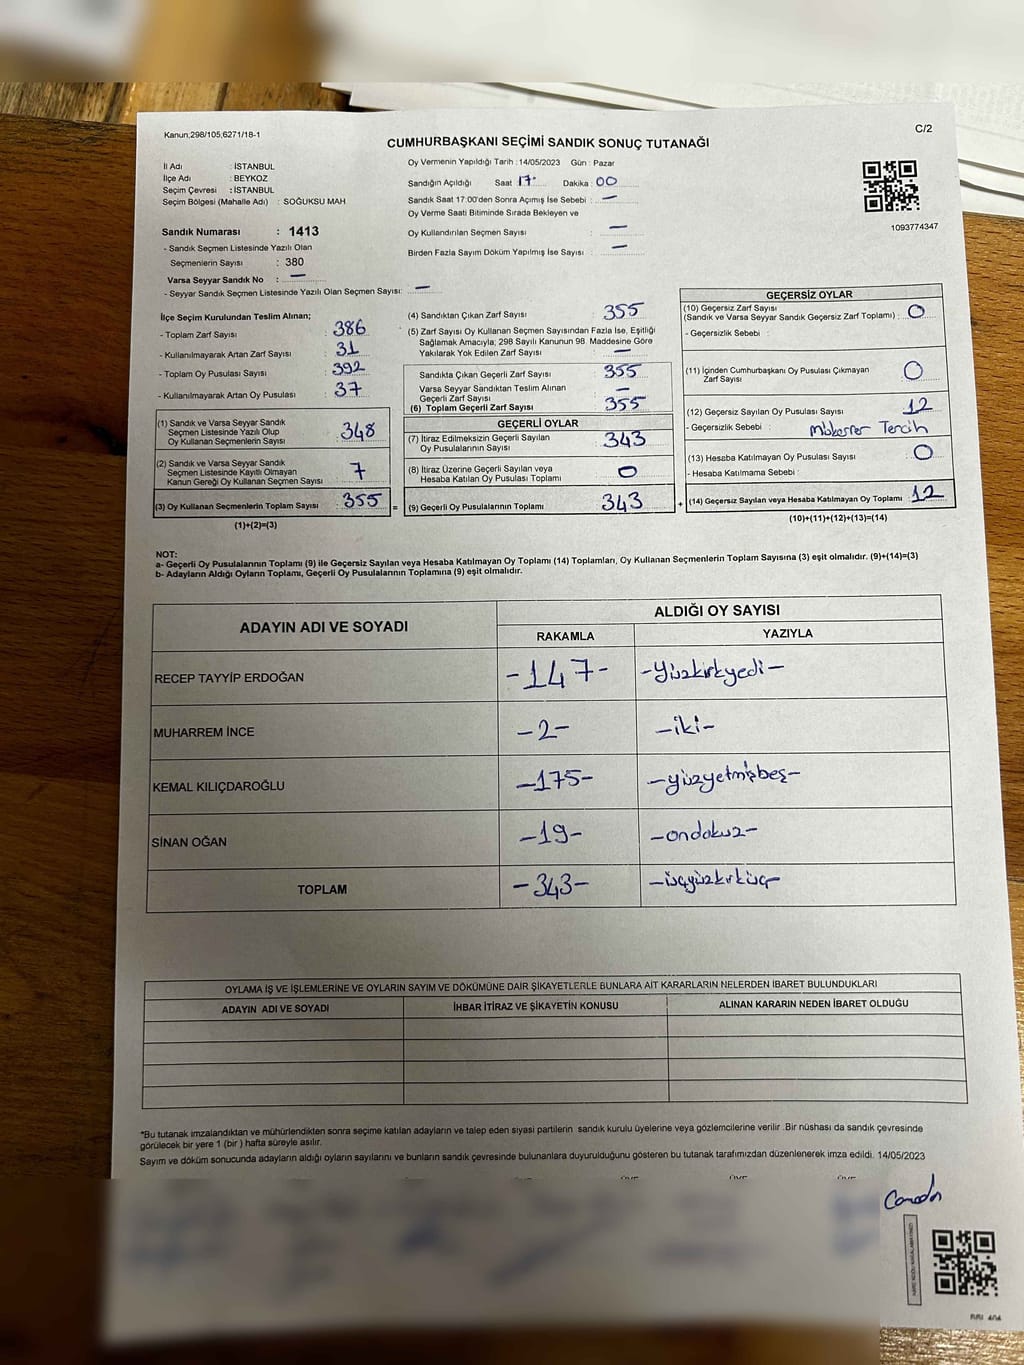 Kanun,298/105,6271/18-1
C/2
CUMHURBAŞKANI SEÇİMİ SANDIK SONUÇ TUTANAĞI
İl Adı : İSTANBUL
İlçe Adı : BEYKOZ
Seçim Çevresi : İSTANBUL
Seçim Bölgesi (Mahalle Adı) : SOĞUKSU MAH
Oy Vermenin Yapıldığı Tarih : 14/05/2023 Gün : Pazar
Sandığın Açıldığı Saat 17 Dakika : 00
Sandık Saat 17:00'den Sonra Açımış İse Sebebi : —
Oy Verme Saati Bitiminde Sırada Bekleyen ve
Oy Kullandırılan Seçmen Sayısı : —
Birden Fazla Sayım Döküm Yapılmış İse Sayısı : —
1093774347
Sandık Numarası : 1413
- Sandık Seçmen Listesinde Yazılı Olan
Seçmenlerin Sayısı : 380
Varsa Seyyar Sandık No : —
- Seyyar Sandık Seçmen Listesinde Yazılı Olan Seçmen Sayısı: —
İlçe Seçim Kurulundan Teslim Alınan;
- Toplam Zarf Sayısı : 386
- Kullanılmayarak Artan Zarf Sayısı : 31
- Toplam Oy Pusulası Sayısı : 392
- Kullanılmayarak Artan Oy Pusulası : 37
(1) Sandık ve Varsa Seyyar Sandık
Seçmen Listesinde Yazılı Olup
Oy Kullanan Seçmenlerin Sayısı : 348
(2) Sandık ve Varsa Seyyar Sandık
Seçmen Listesinde Kayıtlı Olmayan
Kanun Gereği Oy Kullanan Seçmen Sayısı : 7
(3) Oy Kullanan Seçmenlerin Toplam Sayısı : 355 =
(1)+(2)=(3)
(4) Sandıktan Çıkan Zarf Sayısı : 355
(5) Zarf Sayısı Oy Kullanan Seçmen Sayısından Fazla İse, Eşitliği
Sağlamak Amacıyla; 298 Sayılı Kanunun 98. Maddesine Göre
Yakılarak Yok Edilen Zarf Sayısı : —
Sandıkta Çıkan Geçerli Zarf Sayısı : 355
Varsa Seyyar Sandıktan Teslim Alınan
Geçerli Zarf Sayısı : —
(6) Toplam Geçerli Zarf Sayısı : 355
GEÇERLİ OYLAR
(7) İtiraz Edilmeksizin Geçerli Sayılan
Oy Pusulasının Sayısı : 343
(8) İtiraz Üzerine Geçerli Sayılan veya
Hesaba Katılan Oy Pusulası Toplamı : 0
(9) Geçerli Oy Pusulalarının Toplamı : 343 +
GEÇERSİZ OYLAR
(10) Geçersiz Zarf Sayısı
(Sandık ve Varsa Seyyar Sandık Geçersiz Zarf Toplamı) : 0
- Geçersizlik Sebebi :
(11) İçinden Cumhurbaşkanı Oy Pusulası Çıkmayan
Zarf Sayısı : 0
(12) Geçersiz Sayılan Oy Pusulası Sayısı : 12
- Geçersizlik Sebebi : Mükerrer Tercih
(13) Hesaba Katılmayan Oy Pusulası Sayısı : 0
- Hesaba Katılmama Sebebi :
(14) Geçersiz Sayılan veya Hesaba Katılmayan Oy Toplamı : 12
(10)+(11)+(12)+(13)=(14)
NOT:
a- Geçerli Oy Pusulalarının Toplamı (9) ile Geçersiz Sayılan veya Hesaba Katılmayan Oy Toplamı (14) Toplamları, Oy Kullanan Seçmenlerin Toplam Sayısına (3) eşit olmalıdır. (9)+(14)=(3)
b- Adayların Aldığı Oyların Toplamı, Geçerli Oy Pusulalarının Toplamına (9) eşit olmalıdır.
ADAYIN ADI VE SOYADI
ALDIĞI OY SAYISI
RAKAMLA YAZIYLA
RECEP TAYYİP ERDOĞAN -147- -Yüzkırkyedi-
MUHARREM İNCE -2- -iki-
KEMAL KILIÇDAROĞLU -175- -yüzyetmişbeş-
SİNAN OĞAN -19- -ondokuz-
TOPLAM -343- -üçyüzkırküç-
OYLAMA İŞ VE İŞLEMLERİNE VE OYLARIN SAYIM VE DÖKÜMÜNE DAİR ŞİKAYETLERLE BUNLARA AİT KARARLARIN NELERDEN İBARET BULUNDUKLARI
ADAYIN ADI VE SOYADI İHBAR İTİRAZ VE ŞİKAYETİN KONUSU ALINAN KARARIN NEDEN İBARET OLDUĞU
*Bu tutanak imzalandıktan ve mühürlendikten sonra seçime katılan adayların ve talep eden siyasi partilerin sandık kurulu üyelerine veya gözlemcilerine verilir .Bir nüshası da sandık çevresinde
görülecek bir yere 1 (bir ) hafta süreyle asılır.
Sayım ve döküm sonucunda adayların aldığı oyların sayılarını ve bunların sandık çevresinde bulunanlara duyurulduğunu gösteren bu tutanak tarafımızdan düzenlenerek imza edildi. 14/05/2023